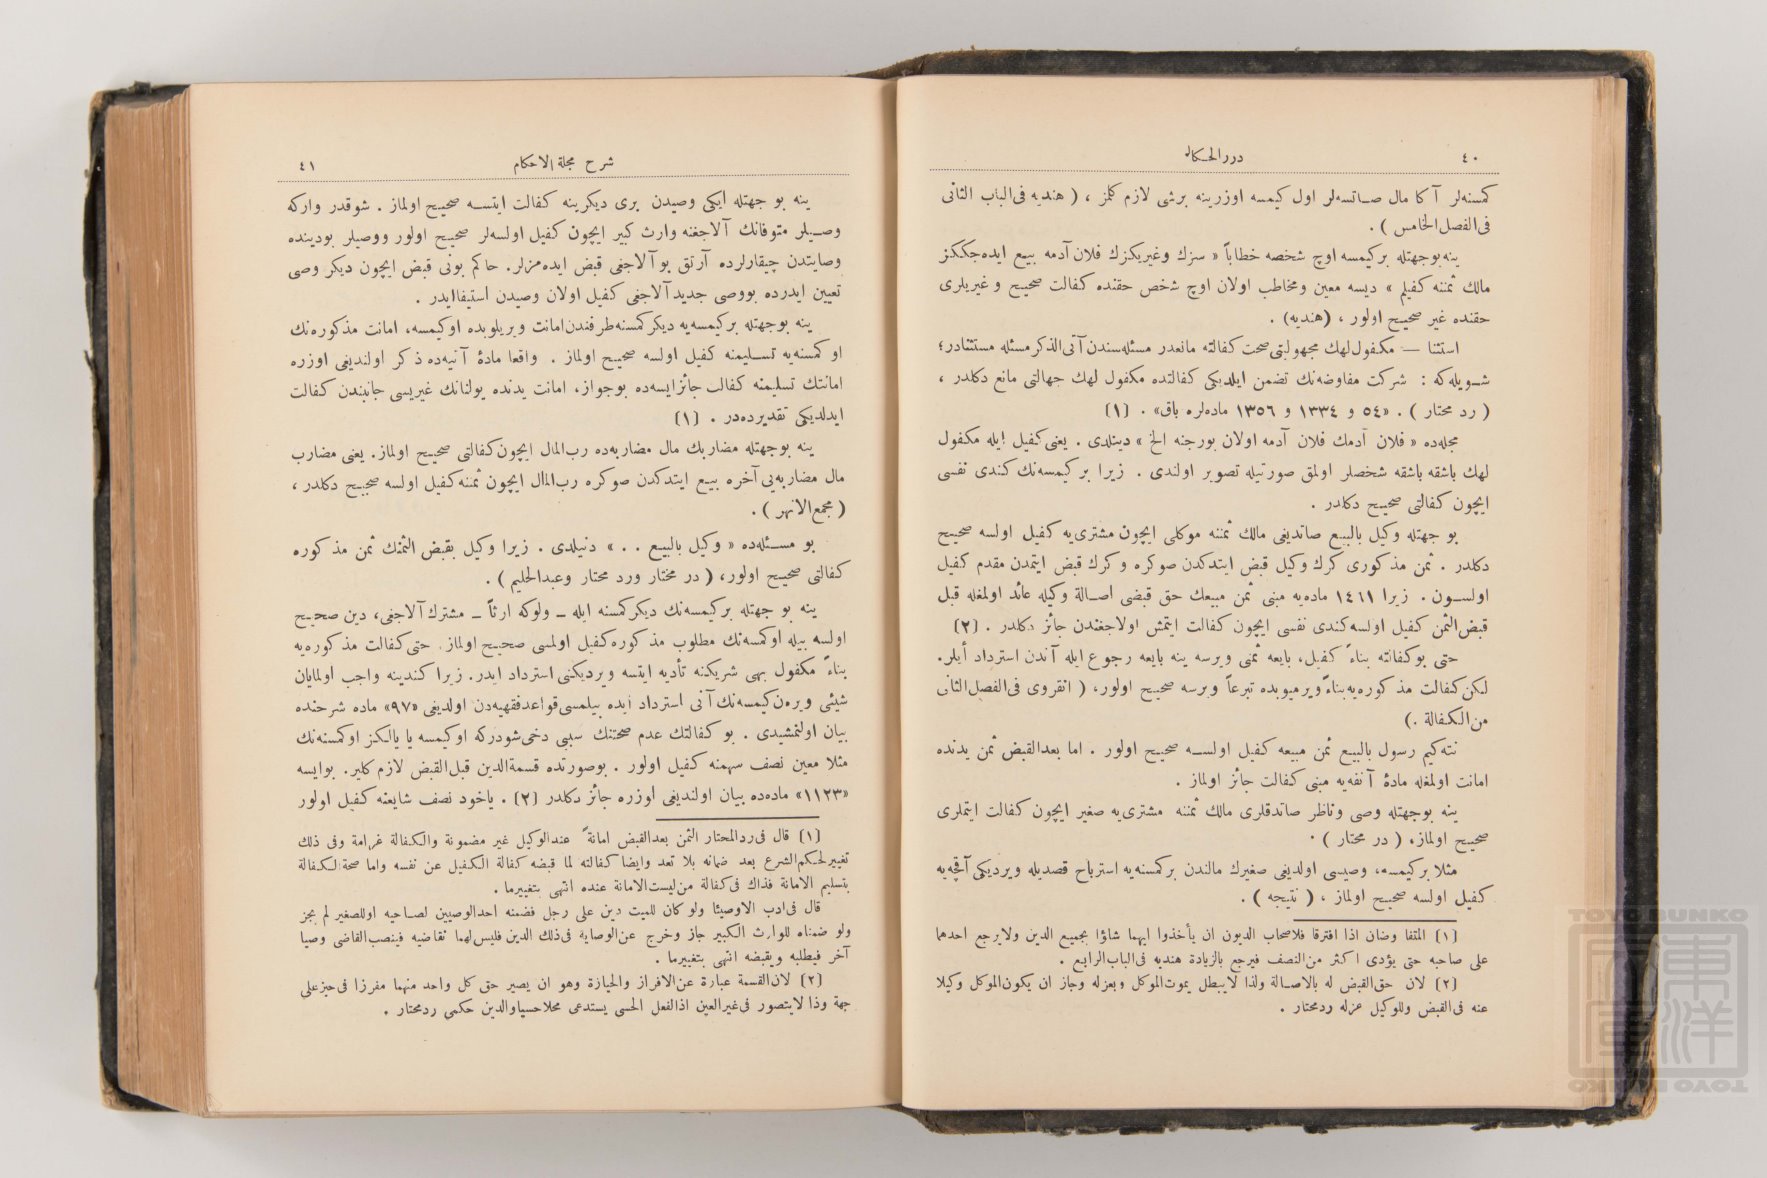 ٤٠
درر الحكام
كمسنه‌لر آ كا مال صاتسه‌لر اول كيمسه اوزرينه برشى لازم كلمز ، ( هنديه فى الباب الثانى
فى الفصل الخامس ) .
ينه بوجهتله بركيمسه اوچ شخصه خطاباً « سزك وغيريكزك فلان آدمه بيع ايده جككز
مالك ثمننه كفيلم » ديسه معين ومخاطب اولان اوچ شخص حقنده كفالت صحيح و غيريلرى
حقنده غير صحيح اولور ، (هنديه) .
استثنا — مكفول لهك مجهوليتى صحت كفالته مانعدر مسئله‌سندن آتى الذكر مسئله مستثنادر؛
شويله كه : شركت مفاوضه‌نك تضمن ايلديكى كفالتده مكفول لهك جهالتى مانع دكلدر ،
( رد محتار ) . «٥٤ و ١٣٣٤ و ١٣٥٦ ماده‌لره باق» . (١)
مجله‌ده « فلان آدمك فلان آدمه اولان بورجنه الخ » دينلدى . يعنى كفيل ايله مكفول
لهك باشقه باشقه شخصلر اولمق صورتيله تصوير اولندى . زيرا بر كيمسه‌نك كندى نفسى
ايچون كفالتى صحيح دكلدر .
بو جهتله وكيل بالبيع صاتديغى مالك ثمننه موكلى ايچون مشترى يه كفيل اولسه صحيح
دكلدر . ثمن مذكورى كرك وكيل قبض ايتدكدن صوكره و كرك قبض ايتمدن مقدم كفيل
اولسون . زيرا ١٤٦١ ماده‌يه مبنى ثمن مبيعك حق قبضى اصالة وكيله عائد اولمغله قبل
قبض الثمن كفيل اولسه كندى نفسى ايچون كفالت ايتمش اولاجغندن جائز دكلدر . (٢)
حتى بوكفالته بناءً كفيل، بايعه ثمنى ويرسه ينه بايعه رجوع ايله آندن استرداد أيلر.
لكن كفالت مذكوره‌يه بناءً ويرميوبده تبرعاً ويرسه صحيح اولور، ( انقروى فى الفصل الثانى
من الكفالة .)
نته كيم رسول بالبيع ثمن مبيعه كفيل اولسه صحيح اولور . اما بعد القبض ثمن يدنده
امانت اولمغله مادۀ آنفه‌يه مبنى كفالت جائز اولماز .
ينه بوجهتله وصى وناظر صاتدقلرى مالك ثمننه مشترى يه صغير ايچون كفالت ايتملرى
صحيح اولماز، ( در محتار ) .
مثلا بركيمسه، وصيسى اولديغى صغيرك مالندن بركمسنه‌يه استرباح قصديله ويرديكى آقچه‌يه
كفيل اولسه صحيح اولماز ، ( نتيجه ) .
(١) المتفا وضان اذا افترقا فلاصحاب الديون ان يأخذوا ايهما شاؤا بجميع الدين ولا يرجع احدهما
على صاحبه حتى يؤدى اكثر من النصف فيرجع بالزيادة هنديه فى الباب الرابع .
(٢) لان حق القبض له بالاصالة ولذا لايبطل بموت الموكل وبعزله وجاز ان يكون الموكل وكيلا
عنه فى القبض وللوكيل عزله ردمحتار .
شرح مجلة الاحكام
٤١
ينه بو جهتله ايكى وصيدن برى ديكرينه كفالت ايتسه صحيح اولماز . شوقدر واركه
وصيلر متوفانك آلاجغنه وارث كبير ايچون كفيل اولسه‌لر صحيح اولور ووصيلر بودينده
وصايتدن چيقارلرده آرتق بو آلاجغى قبض ايده مزلر. حاكم بونى قبض ايچون ديكر وصى
تعيين ايدرده بووصى جديد آلاجغى كفيل اولان وصيدن استيفا ايدر .
ينه بوجهتله بركيمسه‌يه ديكر كمسنه طرفندن امانت ويريلوبده اوكيمسه، امانت مذكوره‌نك
او كمسنه‌يه تسليمنه كفيل اولسه صحيح اولماز . واقعا مادۀ آتيه‌ده ذكر اولنديغى اوزره
امانتك تسليمنه كفالت جائز ايسه‌ده بوجواز، امانت يدنده بولنانك غيريسى جانبندن كفالت
ايدلديكى تقديرده‌در . (١)
ينه بوجهتله مضاربك مال مضاربه‌ده رب المال ايچون كفالتى صحيح اولماز. يعنى مضارب
مال مضاربه‌يى آخره بيع ايتدكدن صوكره رب المال ايچون ثمننه كفيل اولسه صحيح دكلدر ،
( مجمع الانهر ) .
بو مسئله‌ده « وكيل بالبيع . . » دنيلدى . زيرا وكيل بقبض الثمنك ثمن مذكوره
كفالتى صحيح اولور، ( در مختار ورد محتار وعبدالحليم ) .
ينه بو جهتله بركيمسه‌نك ديكر كمسنه ايله – ولوكه ارثاً – مشترك آلاجغى، دين صحيح
اولسه بيله اوكمسه‌نك مطلوب مذكوره كفيل اولمسى صحيح اولماز. حتى كفالت مذكوره‌يه
بناءً مكفول بهى شريكنه تأديه ايتسه ويرديكنى استرداد ايدر. زيرا كندينه واجب اولمايان
شيئى ويرن كيمسه‌نك آنى استرداد ايده بيلمسى قواعد فقهيه‌دن اولديغى «٩٧» ماده شرحنده
بيان اولنمشيدى . بو كفالتك عدم صحتنك سببى دخى شودركه اوكيمسه يا يالكز اوكمسنه‌نك
مثلا معين نصف سهمنه كفيل اولور . بوصورتده قسمة الدين قبل القبض لازم كلير. بوايسه
«١١٢٣» ماده‌ده بيان اولنديغى اوزره جائز دكلدر (٢) . ياخود نصف شايعنه كفيل اولور
(١) قال فى ردالمحتار الثمن بعدالقبض امانةً عندالوكيل غير مضمونة والكفالة غرامة وفى ذلك
تغيير لحكم الشرع بعد ضمانه بلا تعد وايضا كفالته لما قبضه كفالة الكفيل عن نفسه واما صحة الكفالة
بتسليم الامانة فذاك فى كفالة من ليست الامانة عنده انتهى بتغييرما .
قال فى ادب الاوصيئا ولو كان للميت دين على رجل فضمنه احد الوصيين لصاحبه اوللصغير لم يجز
ولو ضمناه للوارث الكبير جاز وخرج عن الوصاية فى ذلك الدين فليس لهما تقاضيه فينصب القاضى وصيا
آخر فيطلبه ويقبضه انتهى بتغييرما .
(٢) لان القسمة عبارة عن الافراز والحيازة وهو ان يصير حق كل واحد منهما مفرزا فى حيز على
جهة وذا لايتصور فى غير العين اذ الفعل الحسى يستدعى محلا حسيا والدين حكمى ردمحتار .
TOYO BUNKO
東洋文庫
TOYO BUNKO